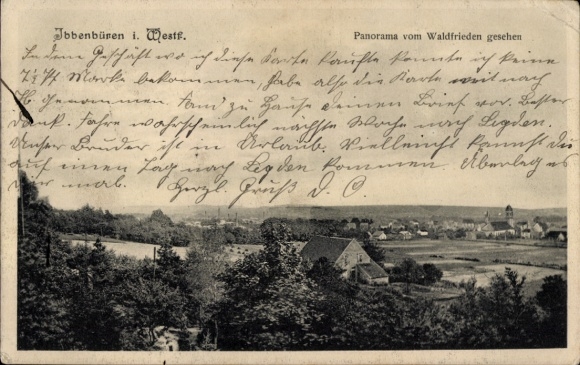 Ibbenbüren i. Westf.
Panorama vom Waldfrieden gesehen
In dem Geschäft wo ich diese Karte kaufte konnte ich keine
7½ Pf Marke bekommen, habe also die Karte mit nach
Jb. genommen. Fand zu Hause deinen Brief vor. Besten
Dank. Fahre wahrscheinlich nächste Woche nach Legden.
Unser Bruder ist in Urlaub. Vielleicht kannst Du
auf einen Tag nach Legden kommen. Überleg es
Dir mal. Herzl. Gruß D. C.